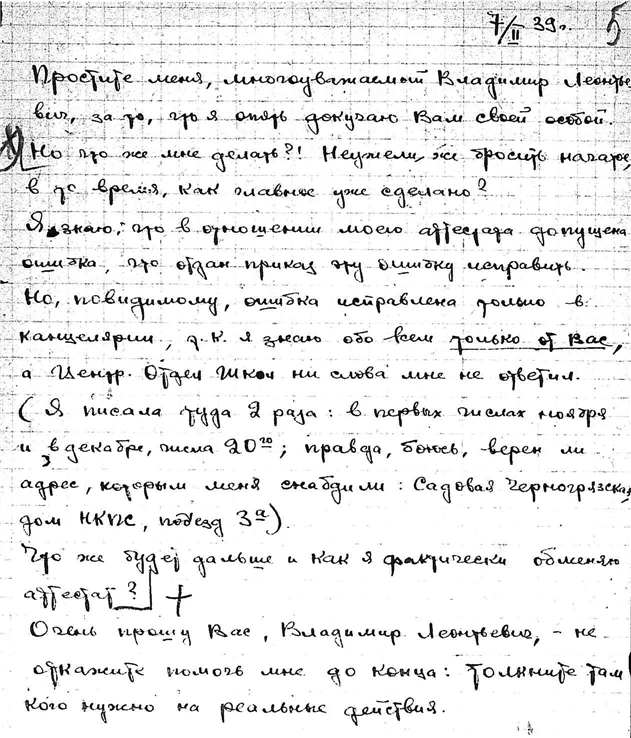 7/II 39г. 5
Простите меня, многоуважаемый Владимир Леонтье
вич, за то, что я опять докучаю Вам своей особой.
Но что же мне делать?! Неужели же бросить начатое,
в то время, как главное уже сделано?
Я знаю, что в отношении моего аттестата допущена
ошибка, что отдан приказ эту ошибку исправить.
Но, повидимому, ошибка исправлена только в
канцелярии, т.к. я знаю обо всем только от Вас,
а Центр. Отдел Школ ни слова мне не ответил.
(Я писала туда 2 раза: в первых числах ноября
и в декабре, числа 20го; правда, боюсь, верен ли
адрес, которым меня снабдили: Садовая Черногрязская
дом НКПС, подъезд 3а).
Что же будет дальше и как я фактически обменяю
аттестат?
Очень прошу Вас, Владимир Леонтьевич, - не
откажите помочь мне до конца: толкните там
кого нужно на реальные действия.